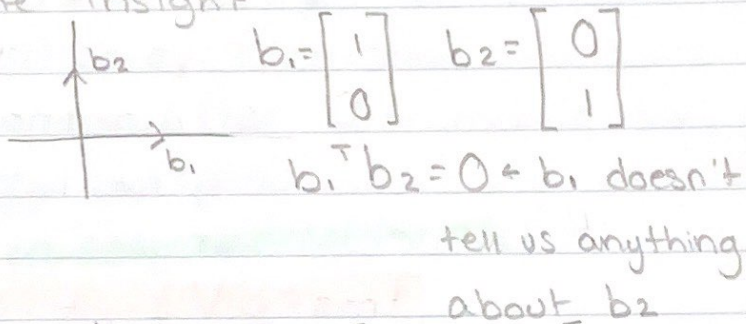 insight
b₂ b₁ = [1 0] b₂ = [0 1]
b₁
b₁ᵀb₂ = 0 ← b₁ doesn't
tell us anything
about b₂